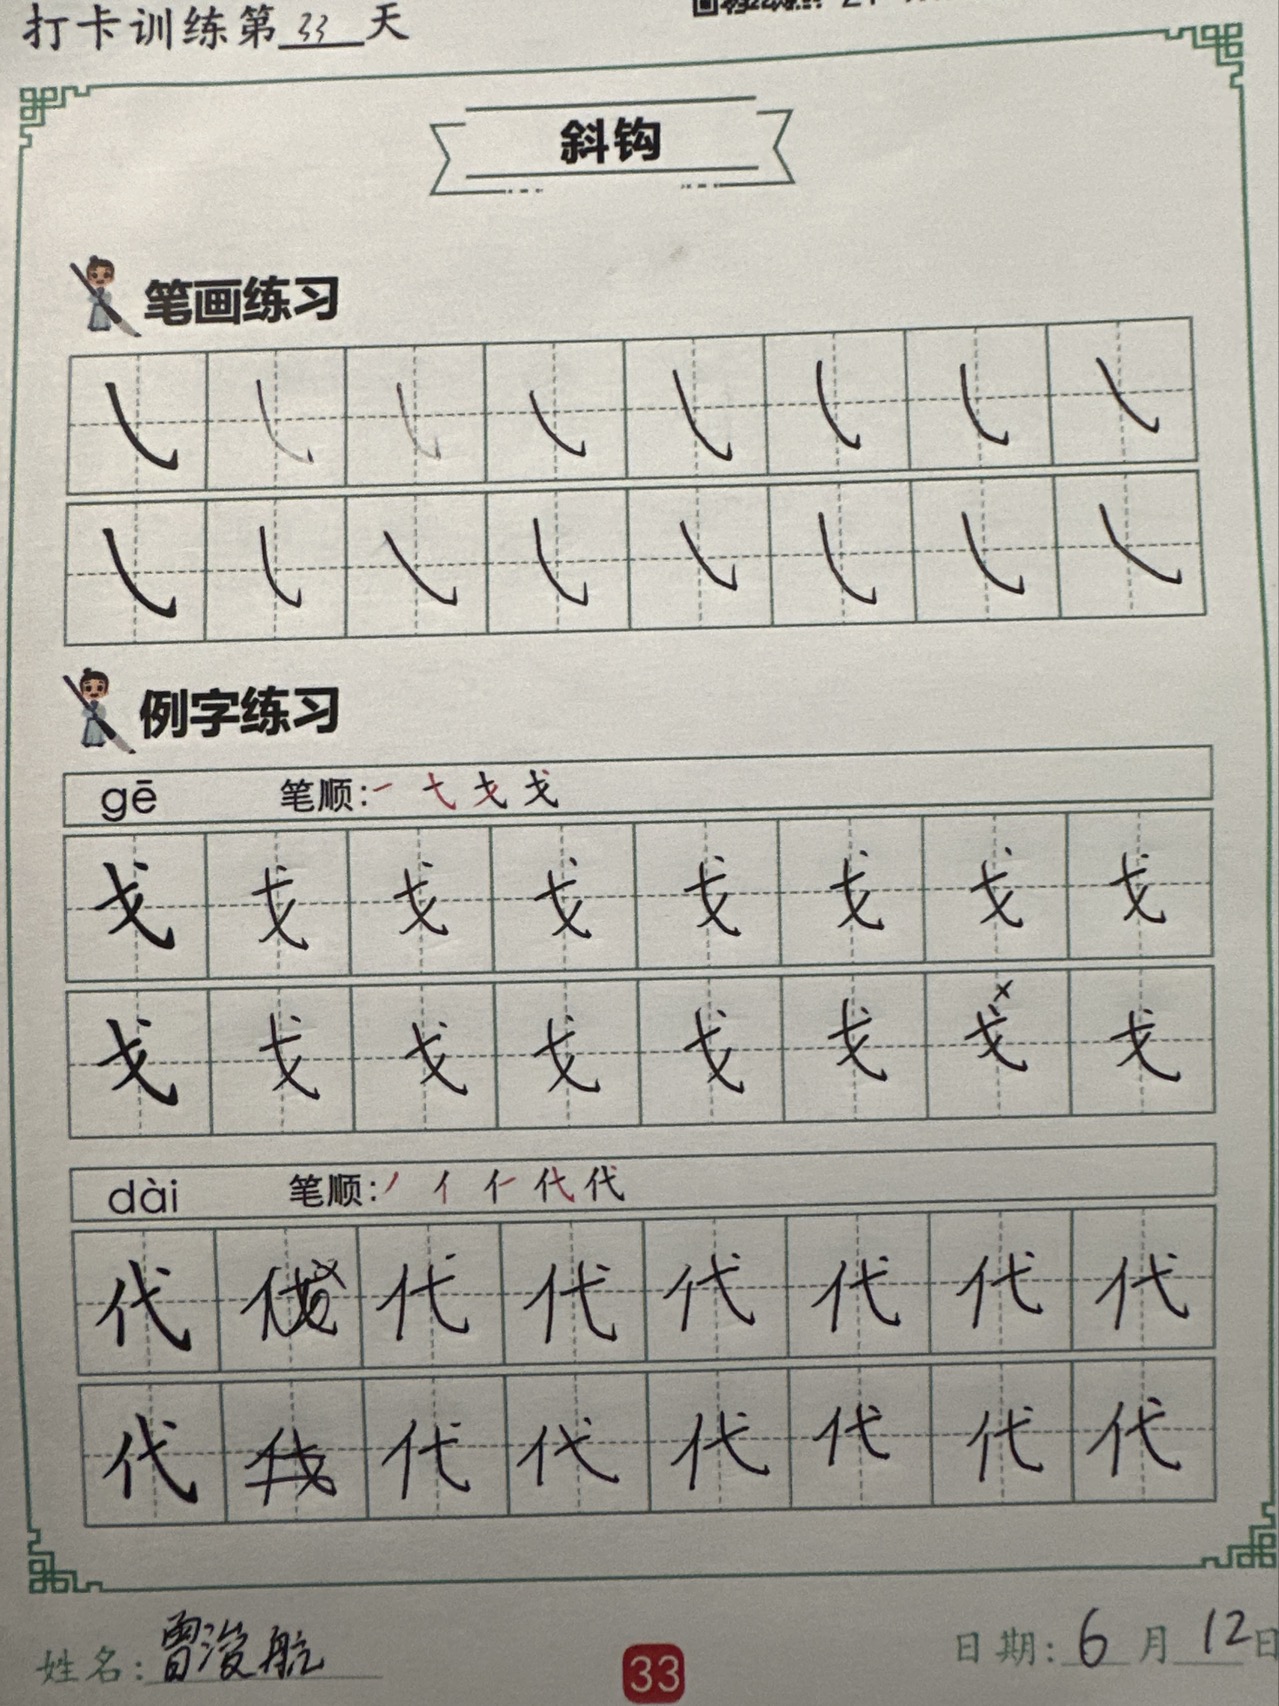 打卡训练第33天
斜钩
笔画练习
㇂ ㇂ ㇂ ㇂ ㇂ ㇂ ㇂ ㇂
㇂ ㇂ ㇂ ㇂ ㇂ ㇂ ㇂ ㇂
例字练习
gē 笔顺:一 弋 戈 戈
戈 戈 戈 戈 戈 戈 戈 戈
戈 戈 戈 戈 戈 戈 戈 戈
dài 笔顺:丿 亻 仁 代 代
代 代 代 代 代 代 代
代 代 代 代 代 代 代
姓名:曾浚航
33
日期:6月12日